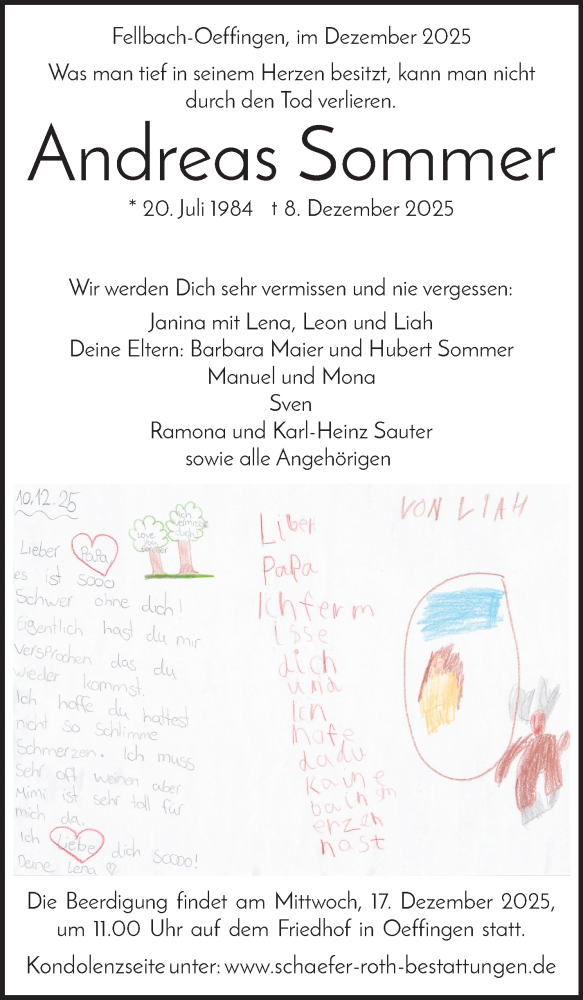 Fellbach-Oeffingen, im Dezember 2025
Was man tief in seinem Herzen besitzt, kann man nicht
durch den Tod verlieren.
Andreas Sommer
* 20. Juli 1984 † 8. Dezember 2025
Wir werden Dich sehr vermissen und nie vergessen:
Janina mit Lena, Leon und Liah
Deine Eltern: Barbara Maier und Hubert Sommer
Manuel und Mona
Sven
Ramona und Karl-Heinz Sauter
sowie alle Angehörigen
10.12.25
Lieber Papa
es ist sooo
Schwer ohne dich!
Eigentlich hast du mir
versprochen das du
wieder kommst.
Ich hoffe du hattest
nicht so Schlimme
Schmerzen. Ich muss
Sehr oft weinen aber
Mimi ist sehr toll für
mich da.
Ich Liebe dich soooo!
Deine Lena
Love
you
Ich
vermisse
dich
Liber
Papa
Ich ferm
isse
dich
und
Ich
hofe
dadu
kaine
bainsm
erzen
hast
VON LIAH
Die Beerdigung findet am Mittwoch, 17. Dezember 2025,
um 11.00 Uhr auf dem Friedhof in Oeffingen statt.
Kondolenzseite unter: www.schaefer-roth-bestattungen.de